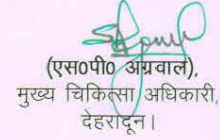 (एस०पी० अग्रवाल),
मुख्य चिकित्सा अधिकारी,
देहरादून।